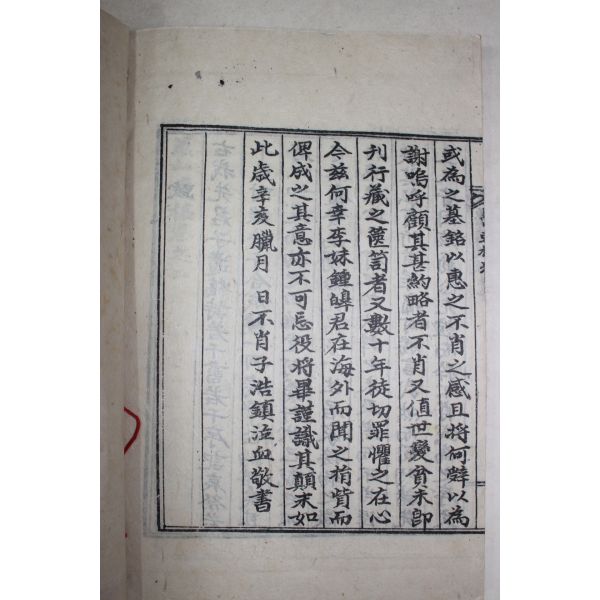 或為之墓銘以惠之不肖之感且將何辭以為
謝嗚呼顧其甚約略者不肖又值世變貧未卽
刊行藏之篋笥者又數十年徒切罪懼之在心
今茲何幸李妹鍾皞君在海外而聞之捐貲而
俾成之其意亦不可忘役將畢謹識其顛末如
此歲辛亥臘月 日不肖子浩鎭泣血敬書